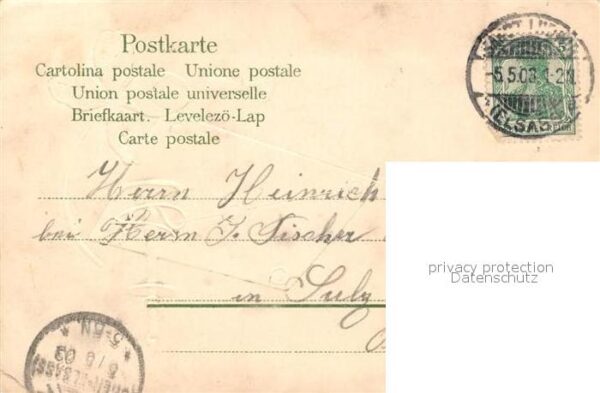 Postkarte
Cartolina postale Unione postale
Union postale universelle
Briefkaart. Levelezö-Lap
Carte postale
-5.5.03.1-2N.
Herrn Heinrich
bei Herrn J. Fischer
in Sulz
privacy protection
Datenschutz